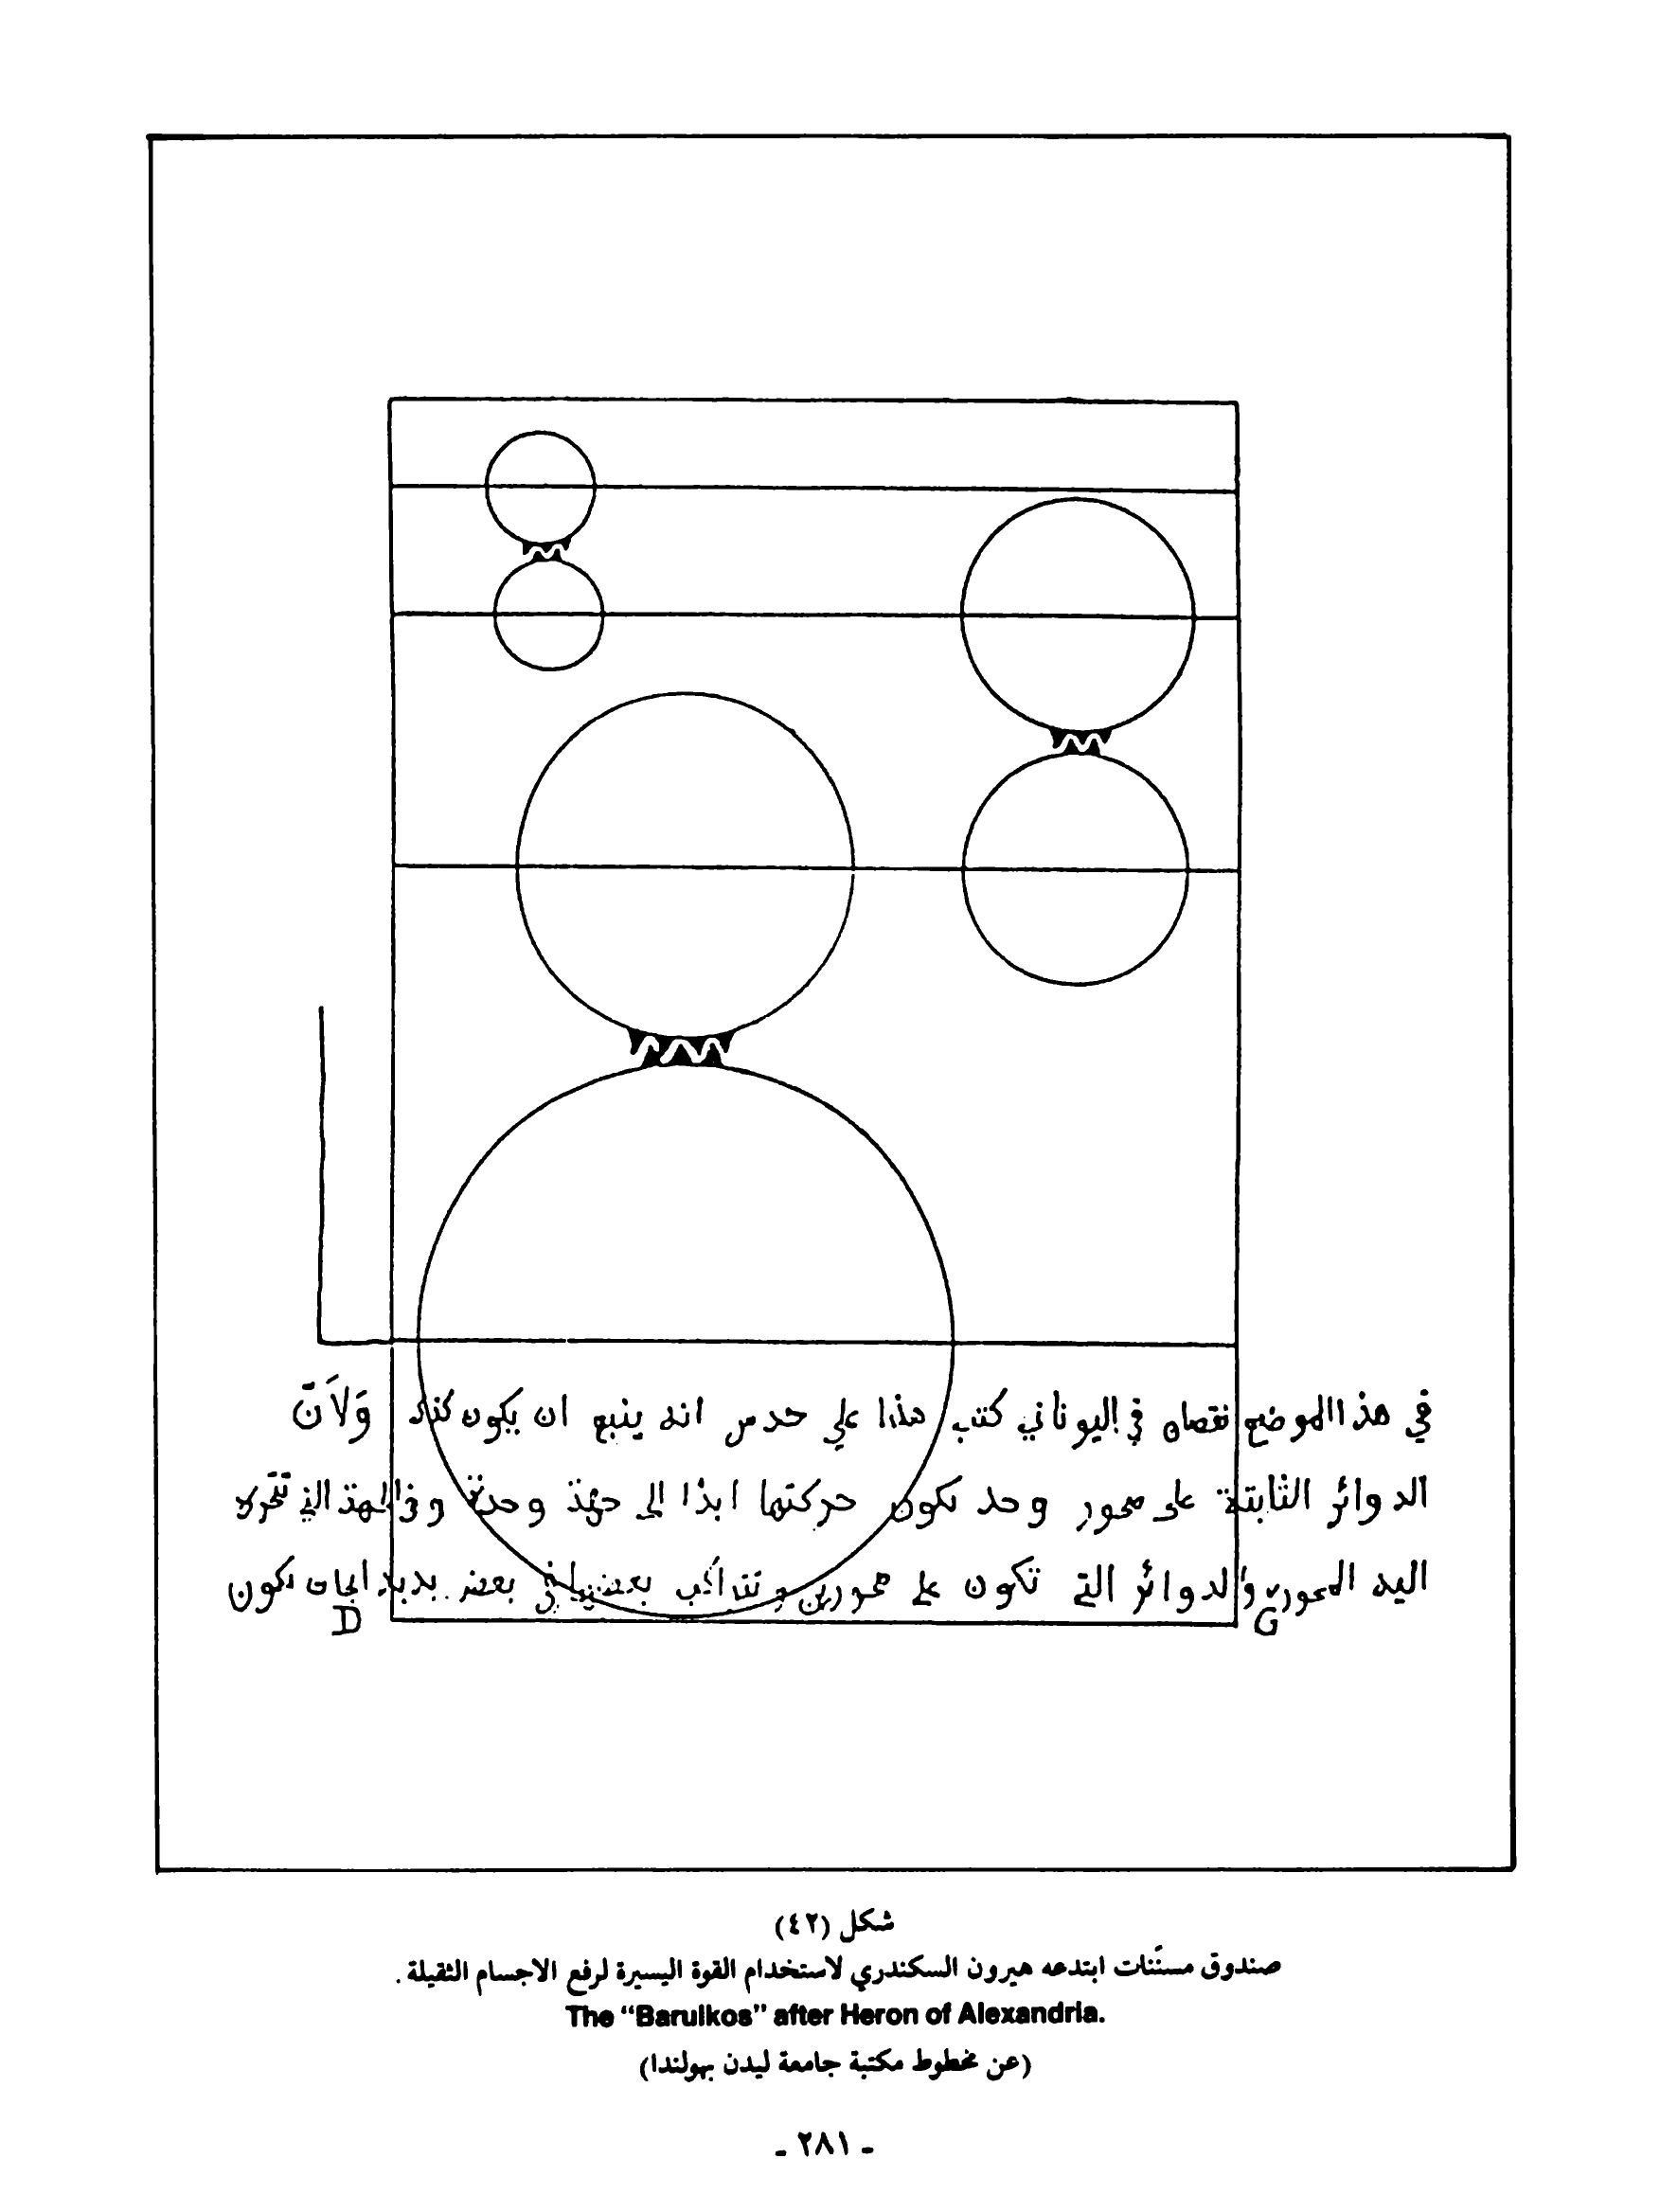 في هذا الموضع نقصان في اليوناني كتب هذا علي حدس انه ينبع ان يكون كذلك وَلاَنّ
الدوائر الثابتة على محور وحد تكون حركتها ابدًا الى جهة وحدة وفي الجهة التي تتحرك
اليه المحورين والدوائر التي تكون على محورين وتتراكب بعضها في بعض تكون
D G
شكل (٤٢)
صندوق مسنّنات ابتدعه هيرون السكندري لاستخدام القوة اليسيرة لرفع الاجسام الثقيلة .
The "Barulkos" after Heron of Alexandria.
(عن مخطوط مكتبة جامعة ليدن بهولندا)
- ٢٨١ -